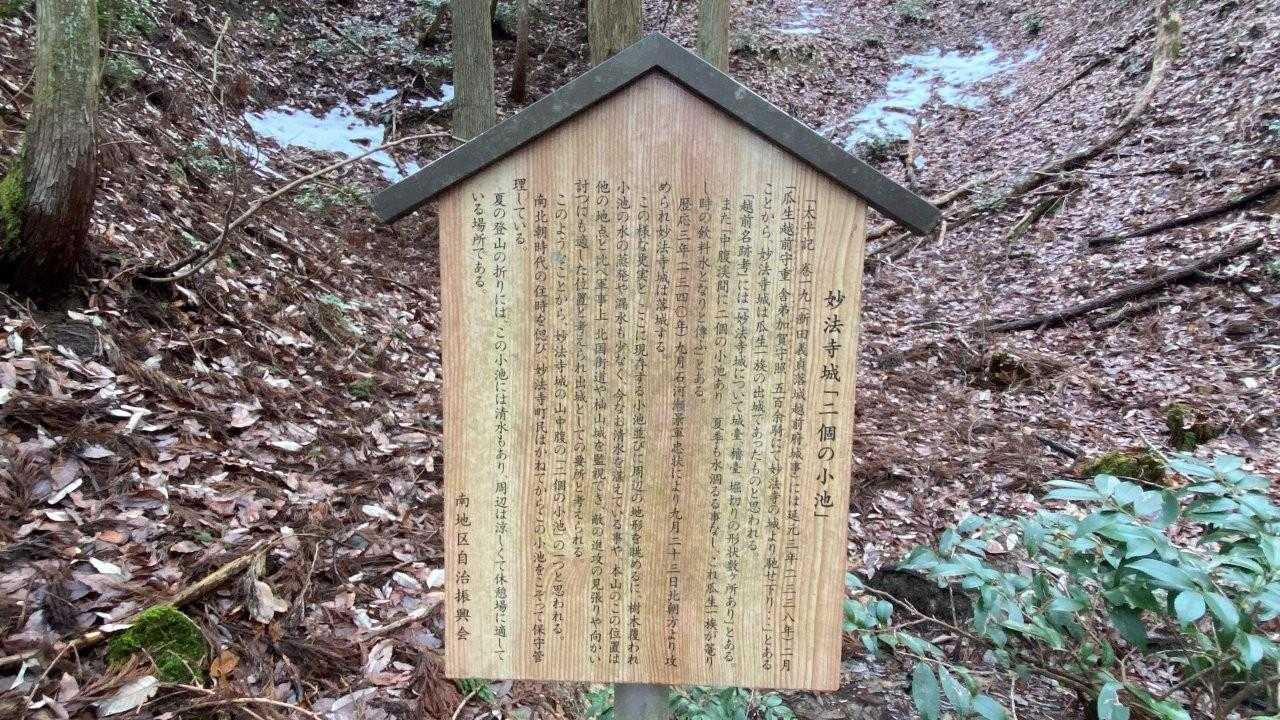 妙法寺城「二個の小池」
「太平記 巻一九 新田義貞落城越前府城事」には延元三年(一三三八年)二月
「瓜生越前守重、舎弟加賀守照、五百余騎にて妙法寺の城より馳せ下り…」とある
ことから、妙法寺城は瓜生一族の出城であったものと思われる。
「越前名跡考」には「妙法寺城について城臺、櫓臺、堀切りの形状数ヶ所あり」とある
また「中腹渓間に二個の小池あり 夏季も水涸る事なし、これ瓜生一族が篭り
し時の飲料水となりしと傳ふ」とある
暦応三年(一三四〇)年、九月石河頼景軍忠状により九月二十三日北朝方より攻
められ妙法寺城は落城する
この様な史実とここに現存する小池並びに周辺の地形を眺めるに、樹木覆われ
小池の水の蒸発や漏水も少なく、今なお清水を湛えている事や、本山のこの位置は
他の地点と比べ軍事上、北国街道や杣山城を監視でき、敵の進攻の見張りや向かい
討つにも適した位置と考えられ出城としての要所と考えられる
このようなことから、妙法寺城の山中腹の「二個の小池」の一つと思われる。
南北朝時代の往時を偲び、妙法寺町民はかねてからこの小池をこぞって保守管
理している。
夏の登山の折りには、この小池には清水もあり、周辺は涼しくて休憩場に適して
いる場所である。
南地区自治振興会